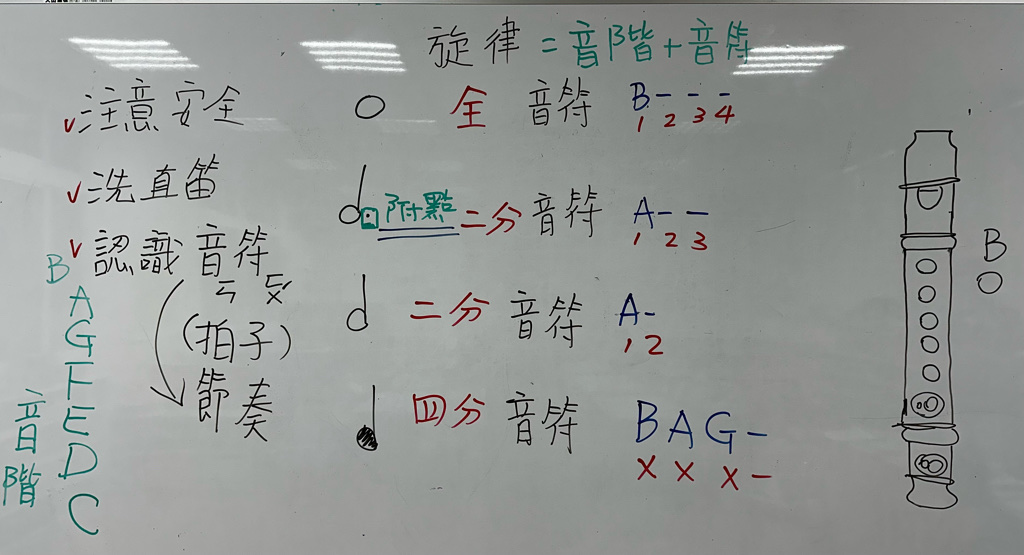 旋律 = 音階 + 音符
✓注意安全
✓洗直笛
✓認識音符
ㄢˋ
(拍子)
節奏
B
A
G
F
E
D
C
音階
全音符 B - - -
1 2 3 4
附點二分音符 A - -
1 2 3
二分音符 A -
1 2
四分音符 B A G -
X X X -
B